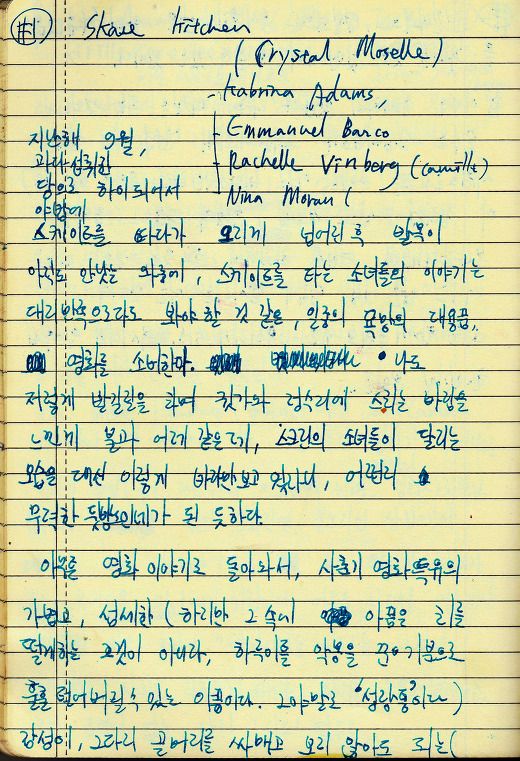 #1) Skate kitchen
(Crystal Moselle)
- Kabrina Adams,
- Emmanuel Barco
- Rachelle Vinberg (Camille)
Nina Moran (
지난해 9월,
과다섭취한
당으로 하이되어서
야밤에
스케이트를 타다가 요란하게 넘어진 후 발목이
아직도 안낫는 와중에, 스케이트를 타는 소녀들의 이야기는
대리만족으로다도 봐야할 것 같은, 일종의 욕망의 대용품,
영화를 소비한다. 나도
저렇게 발길질을 하며 귓가와 정수리에 스치는 바람을
느낀게 불과 어제같은데, 스크린의 소녀들이 달리는
모습을 대신 이렇게 바라만보고 있자니, 어쩐지
무력한 뒷방노인네가 된 듯하다.
아무튼 영화이야기로 돌아와서, 사춘기 영화특유의
가볍고, 섬세한 (하지만 그 속에 아픔은 치를
떨게하는 그것이 아니라, 하룻밤 악몽을 꾼 기분으로
훌훌 털어버릴 수 있는 아픔이다. 그야말로 '성장통'이다)
감성이, 그다지 골머리를 싸매고 보지 않아도 되는(